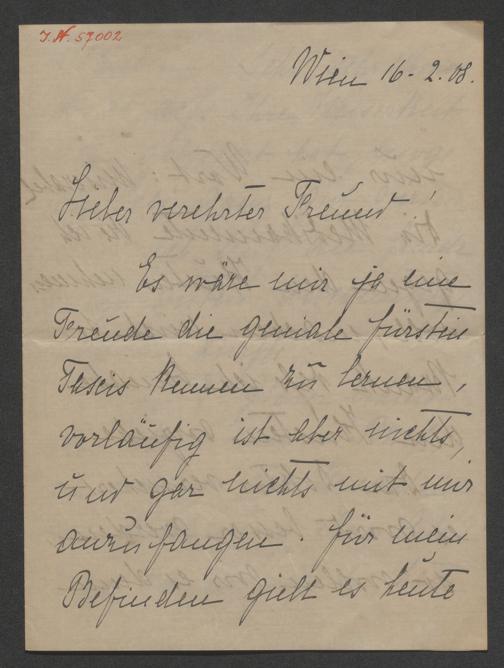 J. N. 57002
Wien 16-2.08.
Lieber verehrter Freund!
Es wäre mir ja eine
Freude die geniale Fürstin
Taxis kennen zu lernen,
vorläufig ist aber nichts,
und gar nichts mit mir
anzufangen. Für mein
Befinden gielt es heute